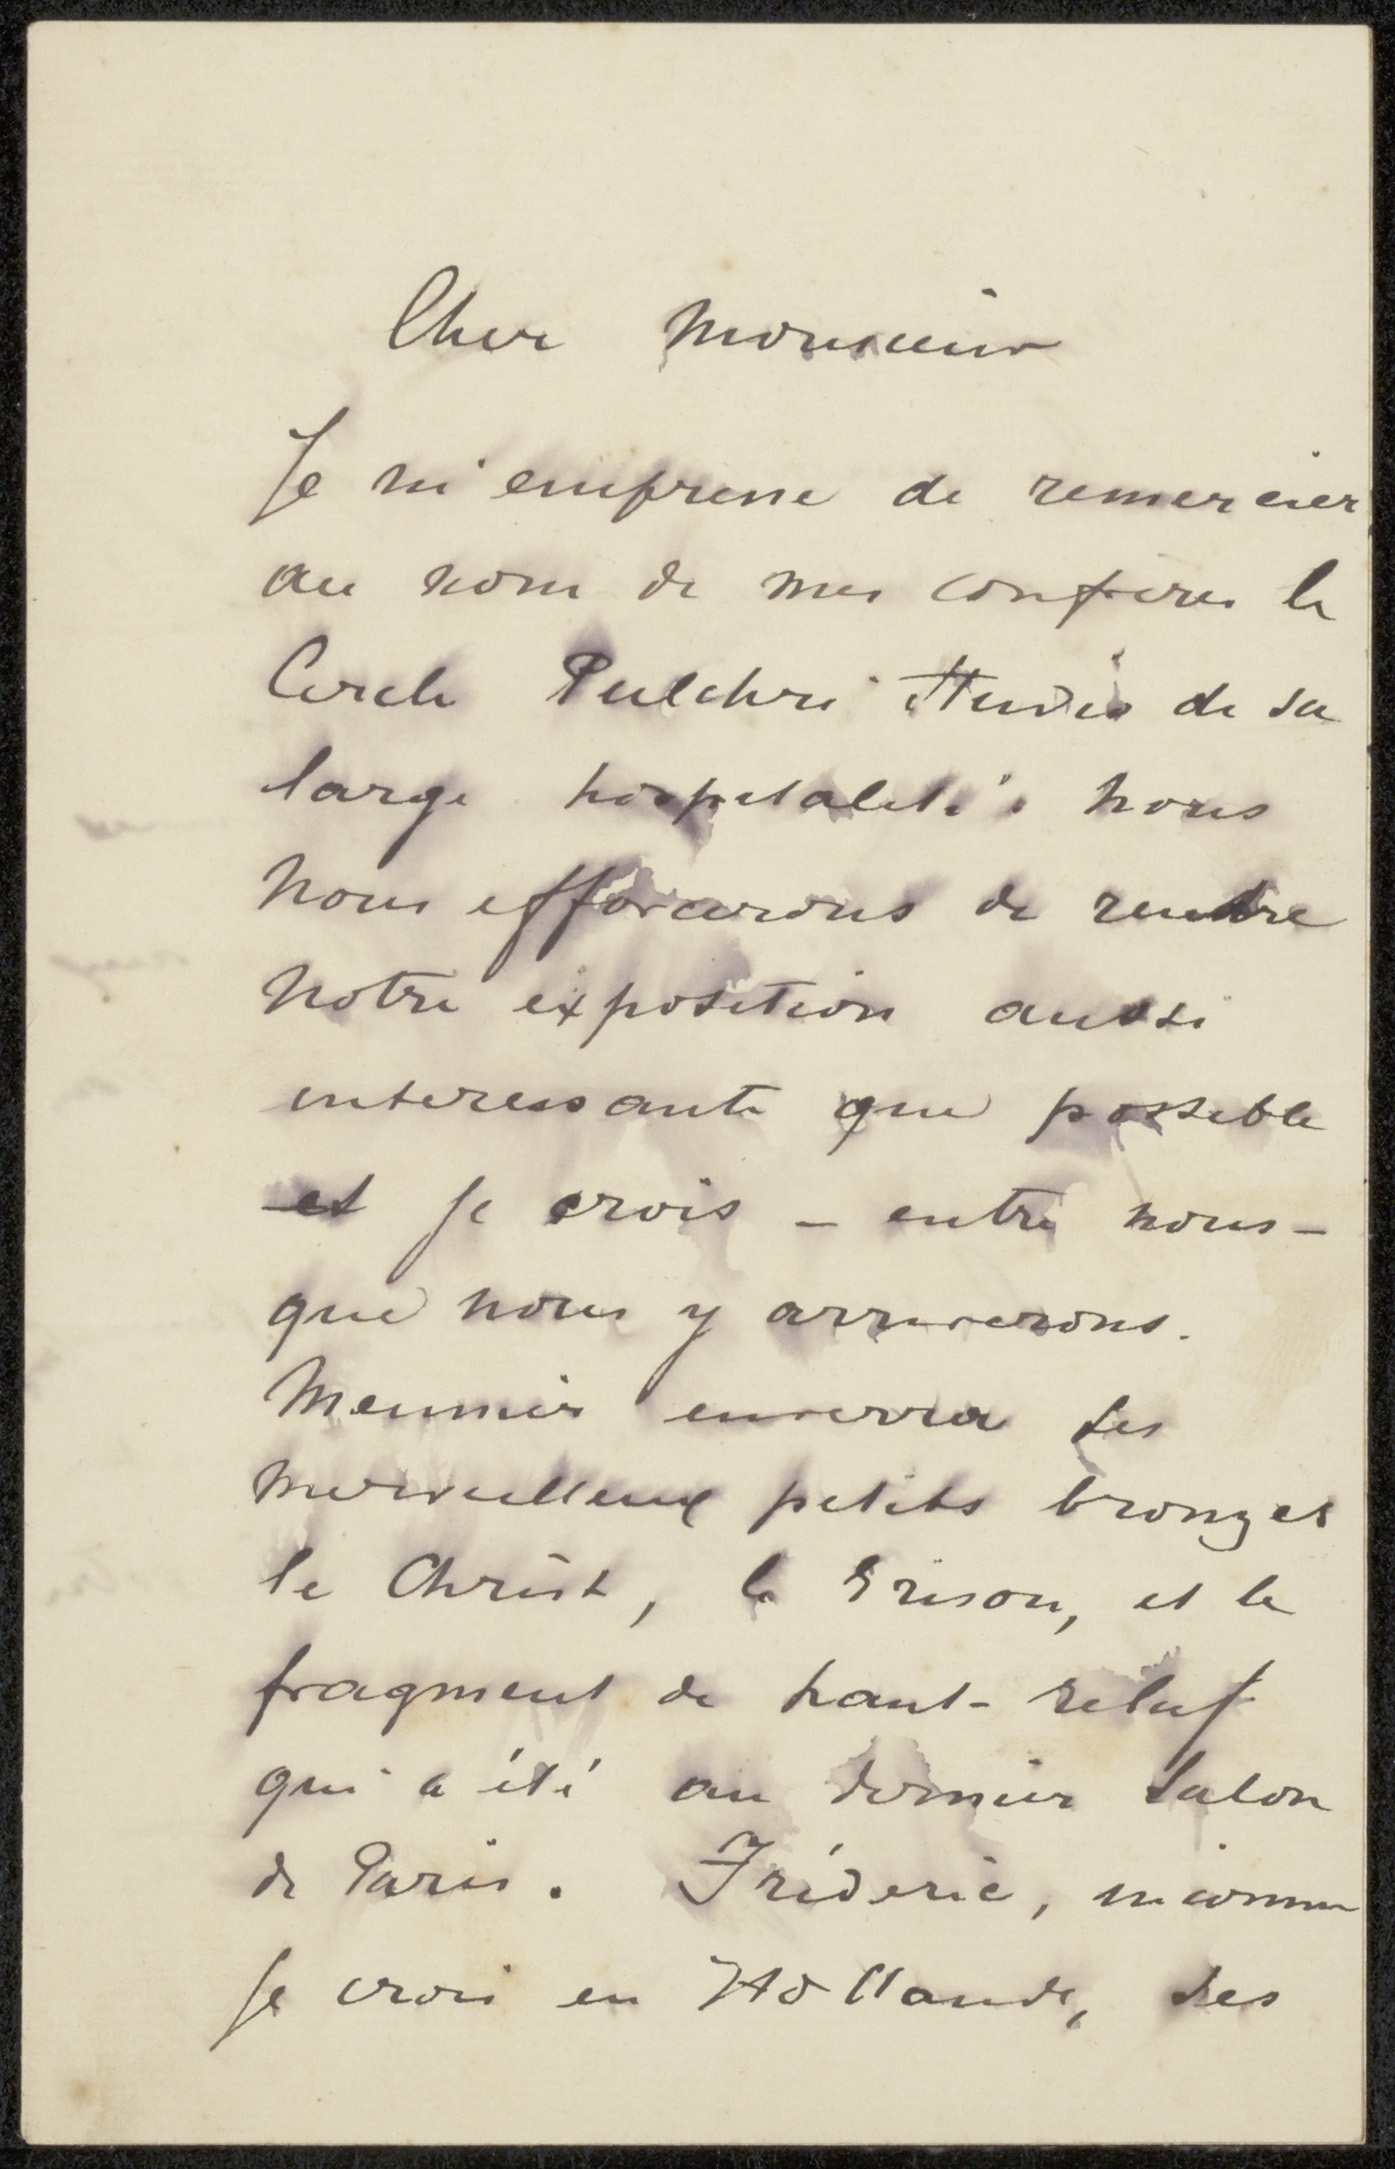 Cher Monsieur
Je m'empresse de remercier
au nom de mes confrères le
Cercle Pulchri Studio de sa
large hospitalité. Nous
nous efforcerons de rendre
notre exposition aussi
interessante que possible
et je crois – entre nous –
que nous y arriverons.
Meunier enverra ses
merveilleux petits bronzes
le Christ, le Grison, et le
fragment de haut-relief
qui a été au dernier Salon
de Paris. Fréderic, inconnu
je crois en Hollande, ses